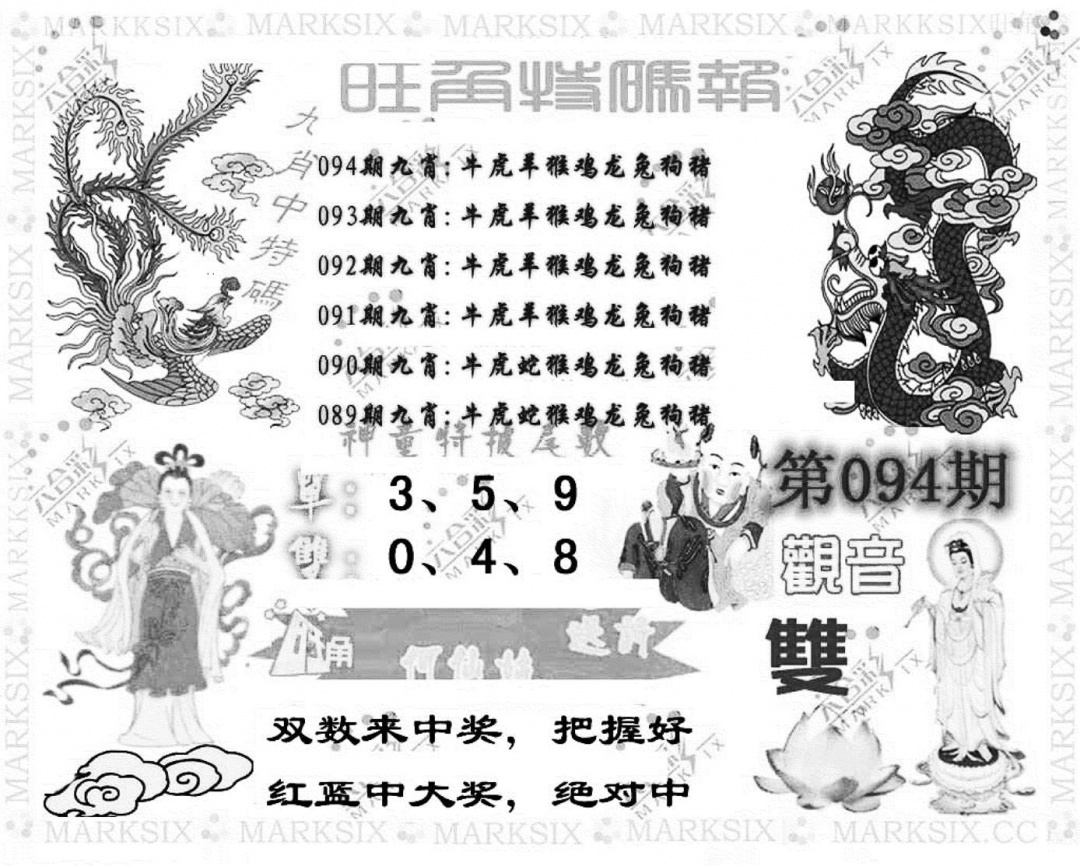 旺角特碼報
九肖中特碼
094期九肖：牛虎羊猴鸡龙兔狗猪
093期九肖：牛虎羊猴鸡龙兔狗猪
092期九肖：牛虎羊猴鸡龙兔狗猪
091期九肖：牛虎羊猴鸡龙兔狗猪
090期九肖：牛虎蛇猴鸡龙兔狗猪
089期九肖：牛虎蛇猴鸡龙兔狗猪
神童特报尾數
單：3、5、9
雙：0、4、8
第094期
觀音
雙
旺角何仙姑
双数来中奖，把握好
红蓝中大奖，绝对中
MARKSIX MARKSIX MARKSIX MARKSIX MARKSIX.CC